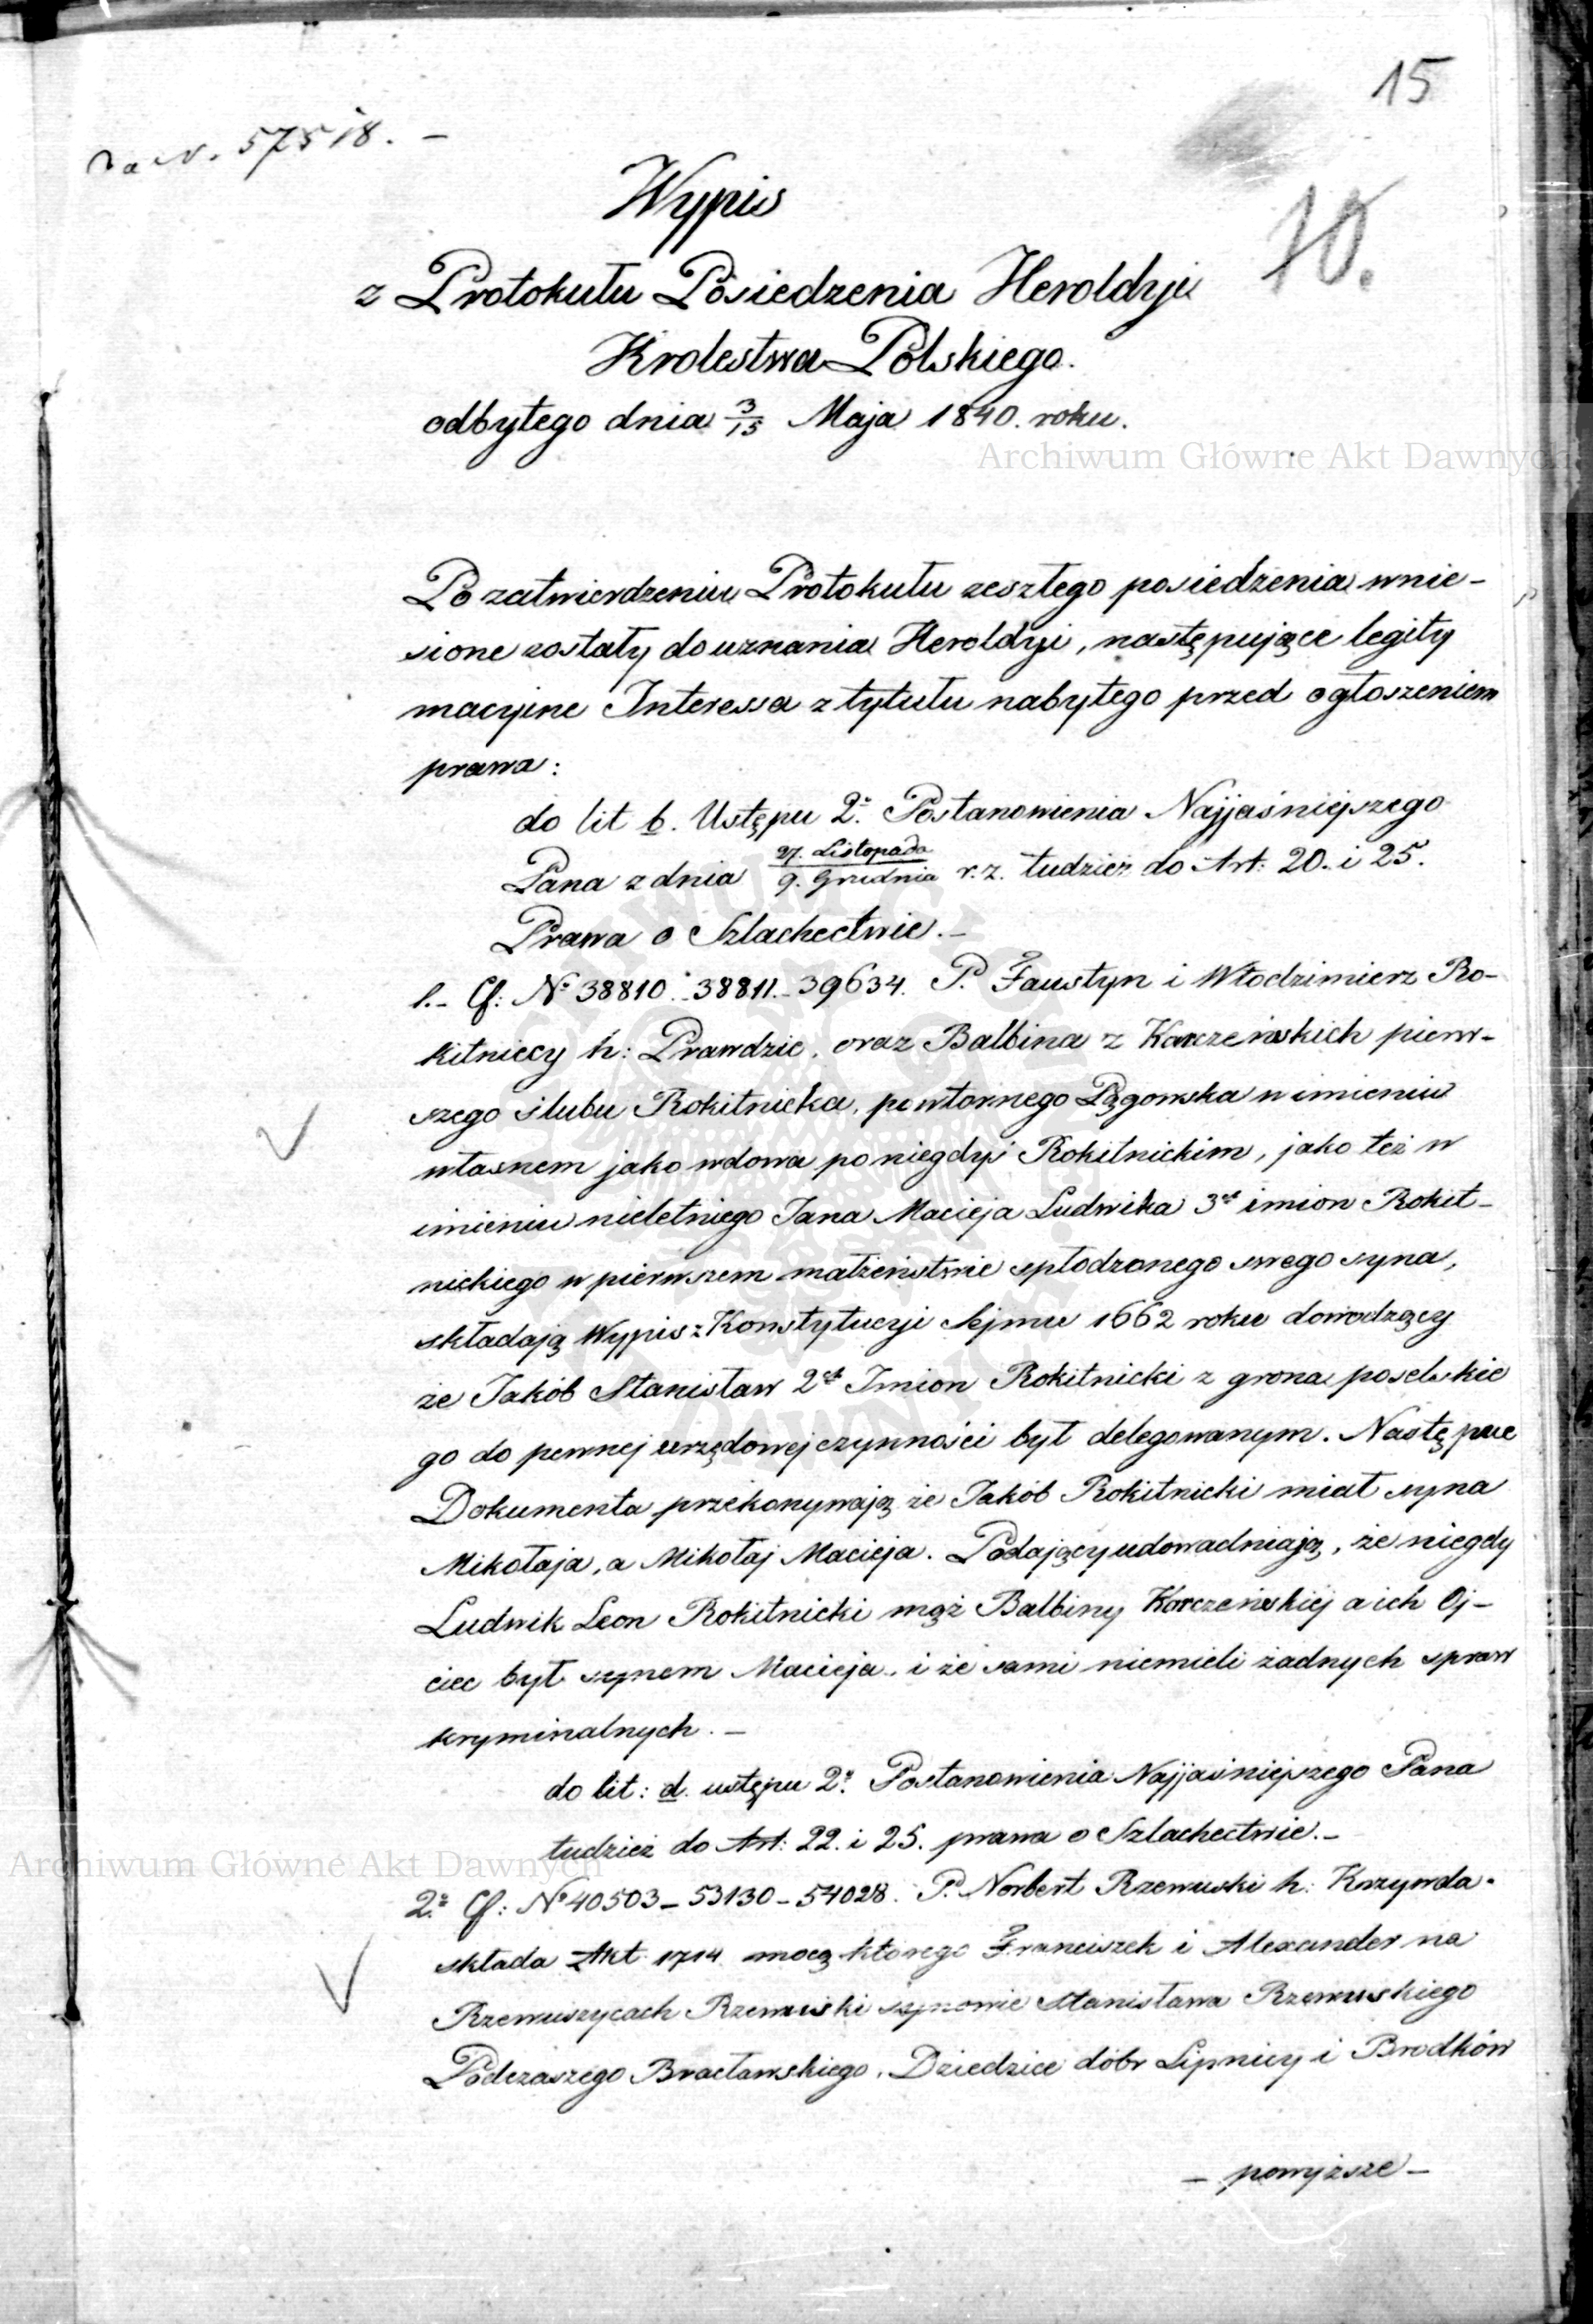 15
Na N. 57518. –
Wypis
10.
z Protokułu Posiedzenia Heroldyi
Krolestwa Polskiego.
odbytego dnia 3/15 Maja 1840. roku.
Archiwum Główne Akt Dawnych
Po zatwierdzeniu Protokułu zeszłego posiedzenia wnie-
sione zostały do uznania Heroldyi, następujące legity
macyjne Interessa z tytułu nabytego przed ogłoszeniem
prawa:
do lit b. Ustępu 2º. Postanowienia Najjaśniejszego
Pana z dnia 27. Listopada / 9. Grudnia r. z. tudzież do Art: 20. i 25.
Prawa o Szlachectwie. –
1. – Cf: Nº 38810. – 38811. – 39634. P. Faustyn i Włodzimierz Ro-
kitniccy h: Prawdzic, oraz Balbina z Karczeńskich pierw-
szego ślubu Rokitnicka, powtornego Pągowska w imieniu
własnem jako wdowa po niegdyś Rokitnickim, jako też w
imieniu nieletniego Jana Macieja Ludwika 3ch imion Rokit-
nickiego w pierwszem małżeństwie spłodzonego swego syna,
składają Wypis z Konstytucyi Sejmu 1662 roku dowodzący
że Jakób Stanisław 2ch Imion Rokitnicki z grona poselskie
go do pewnej urzędowej czynności był delegowanym. Następne
Dokumenta przekonywają że Jakób Rokitnicki miał syna
Mikołaja, a Mikołaj Macieja. Podający udowadniają, że niegdy
Ludwik Leon Rokitnicki mąż Balbiny Karczeńskiej a ich Oj-
ciec był synem Macieja, i że sami niemieli żadnych spraw
kryminalnych. –
do lit: d. ustępu 2º. Postanowienia Najjaśniejszego Pana
tudzież do Art: 22. i 25. prawa o Szlachectwie. –
Archiwum Główne Akt Dawnych
2º. Cf: Nº 40503 – 53130 – 54028. P. Norbert Rzewuski h: Krzywda.
składa Akt 1714 mocą którego Franciszek i Alexander na
Rzewuszycach Rzewuski synowie Stanisława Rzewuskiego
Podczaszego Bracławskiego, Dziedzice dóbr Lipnicy i Brodków
– powyższe –